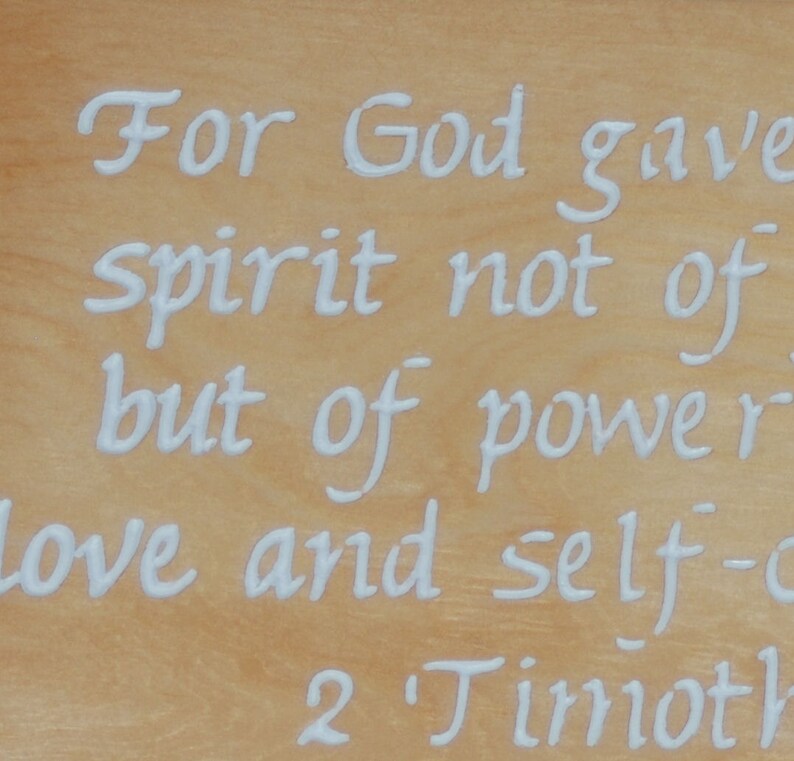 For God gave
spirit not of
but of power
love and self-c
2 Timoth